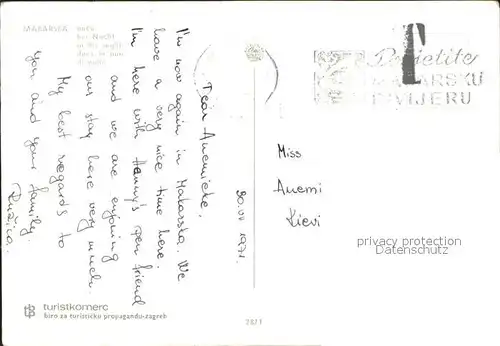 MAKARSKA
bei Nacht
Dear Anemieke,
I'm now again in Makarska. We
have a very nice time here.
I'm here with Hanny's pen friend
and we are enjoing
our stay here very much.
My best regards to
you and your family.
Ružica.
30.VII 1971
Posjetite
MAKARSKU
RIVIJERU
T
Miss
Anemi
Kievi
privacy protection
Datenschutz
turistkomerc
biro za turističku propagandu-zagreb